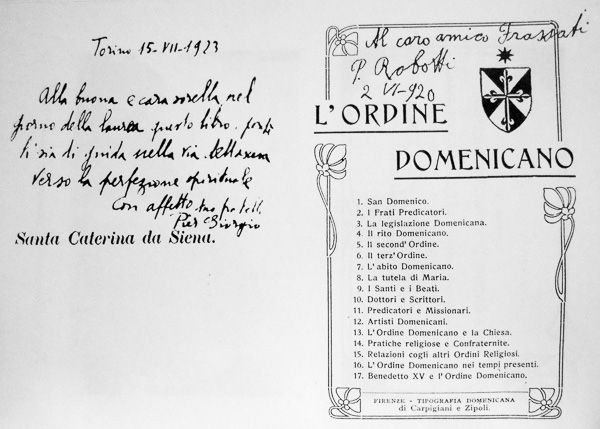 Torino 15-VII-1923
Alla buona e cara sorella nel
giorno della laurea questo libro
ti sia di guida nella via
verso la perfezione spirituale
Con affetto tuo fratell.
Pier Giorgio
Santa Caterina da Siena.
Al caro amico Frassati
P. Robotti
2 VI-920
L'ORDINE
DOMENICANO
1. San Domenico.
2. I Frati Predicatori.
3. La legislazione Domenicana.
4. Il rito Domenicano.
5. Il second' Ordine.
6. Il terz' Ordine.
7. L'abito Domenicano.
8. La tutela di Maria.
9. I Santi e i Beati.
10. Dottori e Scrittori.
11. Predicatori e Missionari.
12. Artisti Domenicani.
13. L'Ordine Domenicano e la Chiesa.
14. Pratiche religiose e Confraternite.
15. Relazioni cogli altri Ordini Religiosi.
16. L'Ordine Domenicano nei tempi presenti.
17. Benedetto XV e l'Ordine Domenicano.
FIRENZE - TIPOGRAFIA DOMENICANA
di Carpigiani e Zipoli.